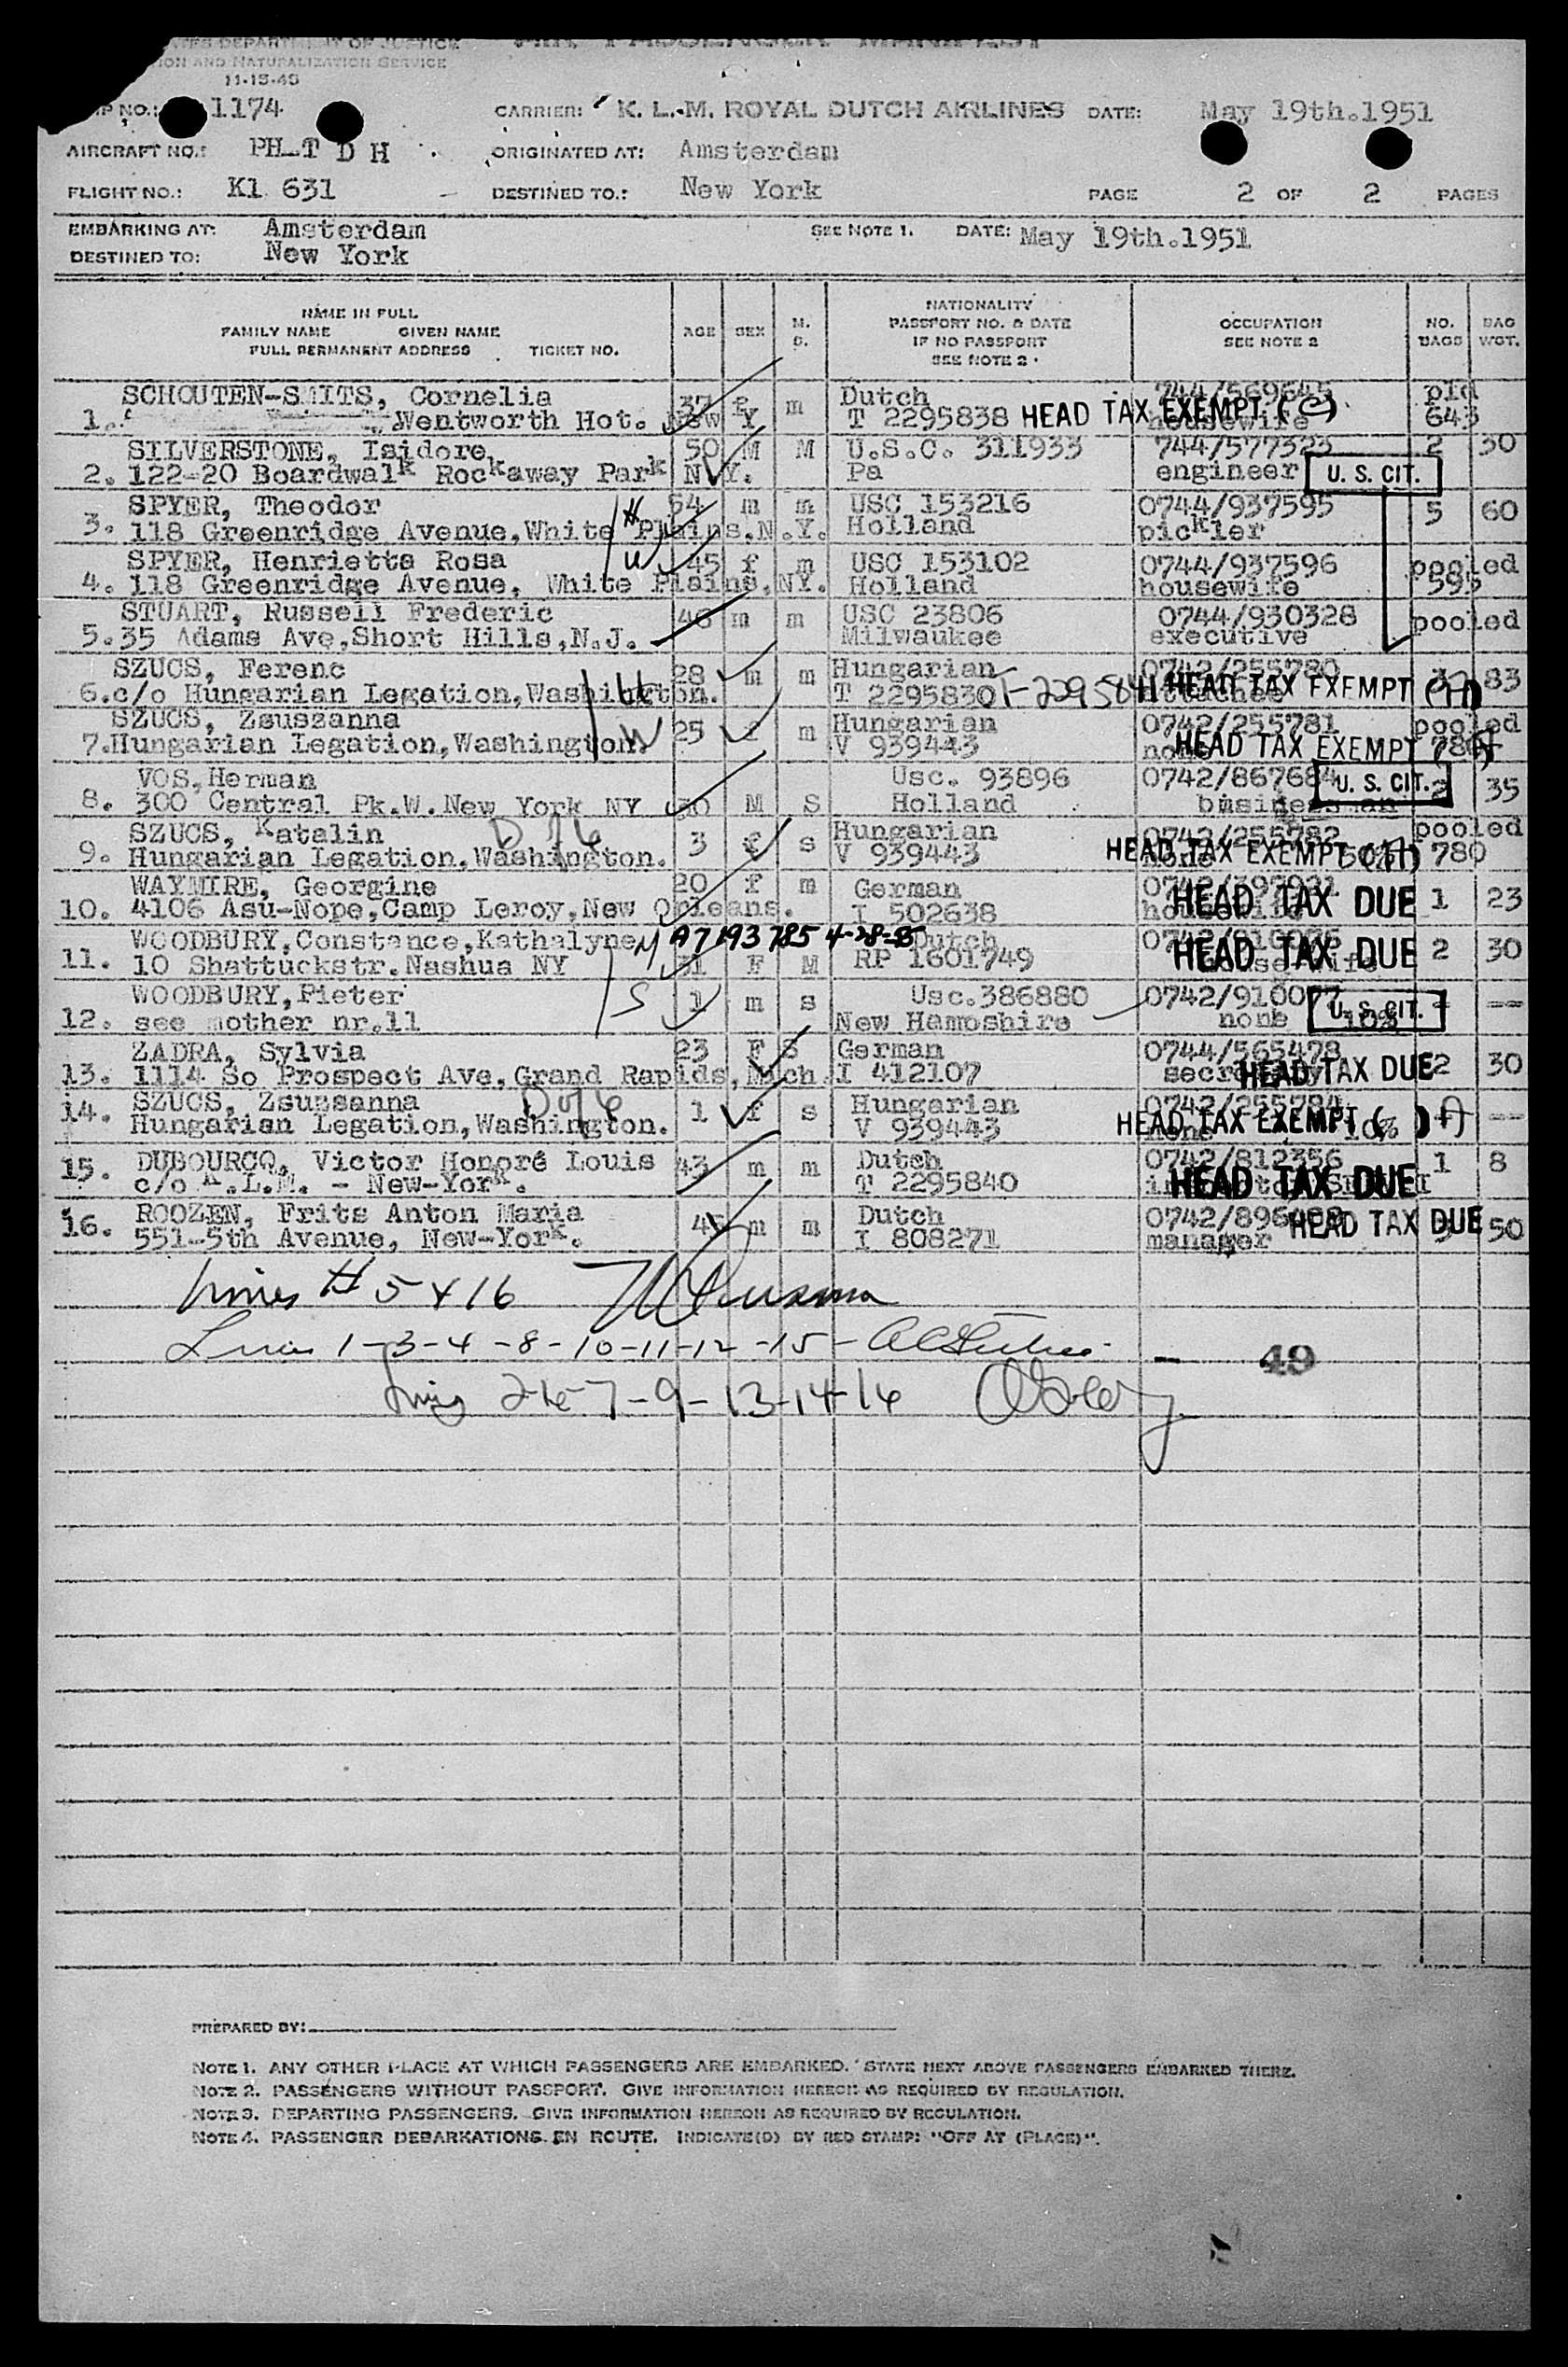 DEPARTMENT OF JUSTICE AIR PASSENGER MANIFEST
ION AND NATURALIZATION SERVICE
11-15-49
NO.: 1174 CARRIER: K. L. M. ROYAL DUTCH AIRLINES DATE: May 19th.1951
AIRCRAFT NO.: PH-T D H ORIGINATED AT: Amsterdam
FLIGHT NO.: Kl 631 DESTINED TO.: New York PAGE 2 OF 2 PAGES
EMBARKING AT: Amsterdam SEE NOTE 1. DATE: May 19th.1951
DESTINED TO: New York
NAME IN FULL
FAMILY NAME GIVEN NAME
FULL PERMANENT ADDRESS TICKET NO. AGE SEX M. S. NATIONALITY PASSPORT NO. & DATE IF NO PASSPORT SEE NOTE 2 OCCUPATION SEE NOTE 2 NO. BAGS BAG WGT.
SCHOUTEN-SMITS, Cornelia 37 f m Dutch 744/569645 pld
1. Wentworth Hot. New Y T 2295838 HEAD TAX EXEMPT (C) housewife 643
SILVERSTONE, Isidore 50 M M U.S.C. 311933 744/577323 2 30
2. 122-20 Boardwalk Rockaway Park N.Y. Pa engineer U. S. CIT.
SPYER, Theodor H 54 m m USC 153216 0744/937595 5 60
3. 118 Greenridge Avenue,White Plains.N.Y. Holland pickler
SPYER, Henrietta Rosa W 45 f m USC 153102 0744/937596 pooled
4. 118 Greenridge Avenue, White Plains,NY. Holland housewife 595
STUART, Russell Frederic 46 m m USC 23806 0744/930328 pooled
5.35 Adams Ave,Short Hills,N.J. Milwaukee executive
SZUCS, Ferenc 28 m m Hungarian 0742/255780 83
6.c/o Hungarian Legation,Washington. H T 2295830 HEAD TAX EXEMPT (H)
SZUCS, Zsuszanna W 25 f m Hungarian 0742/255781 pooled
7.Hungarian Legation,Washington. V 939443 none HEAD TAX EXEMPT 780
VOS,Herman Usc. 93896 0742/867684 U. S. CIT. 2 35
8. 300 Central Pk.W.New York NY 30 M S Holland businessman
SZUCS, Katalin 3 f s Hungarian 0742/255782 pooled
9. Hungarian Legation,Washington. V 939443 none HEAD TAX EXEMPT (H) 780
WAYMIRE, Georgine 20 f m German HEAD TAX DUE 1 23
10. 4106 Asu-Nope,Camp Leroy,New Orleans. I 502638 housewife
WOODBURY,Constance,Kathalyne M A7193785 4-28-55 Dutch HEAD TAX DUE 2 30
11. 10 Shattuckstr.Nashua NY 31 F M RP 1601949 housewife
WOODBURY,Pieter S 1 m s Usc.386880 0742/910077 U. S. CIT. - --
12. see mother nr.11 New Hampshire none 10%
ZADRA, Sylvia 23 F S German 0744/565478 2 30
13. 1114 So Prospect Ave,Grand Rapids,Mich. I 412107 secretary HEAD TAX DUE
SZUCS, Zsuzsanna 1 f s Hungarian 0742/255784 --
14. Hungarian Legation,Washington. V 939443 none HEAD TAX EXEMPT ( ) 10%
15. DUBOURCQ, Victor Honoré Louis 43 m m Dutch 0742/812356 1 8
c/o K.L.M. - New-York. T 2295840 HEAD TAX DUE
16. ROOZEN, Frits Anton Maria 45 m m Dutch 50
551-5th Avenue, New-York. I 808271 manager HEAD TAX DUE
Lines # 5 & 16
Lines 1-3-4-8-10-11-12-15- 49
Lines 2-6-7-9-13-14-16
PREPARED BY:
NOTE 1. ANY OTHER PLACE AT WHICH PASSENGERS ARE EMBARKED. STATE NEXT ABOVE PASSENGERS EMBARKED THERE.
NOTE 2. PASSENGERS WITHOUT PASSPORT. GIVE INFORMATION HEREON AS REQUIRED BY REGULATION.
NOTE 3. DEPARTING PASSENGERS. GIVE INFORMATION HEREON AS REQUIRED BY REGULATION.
NOTE 4. PASSENGER DEBARKATIONS EN ROUTE. INDICATE(D) BY RED STAMP: "OFF AT (PLACE)".